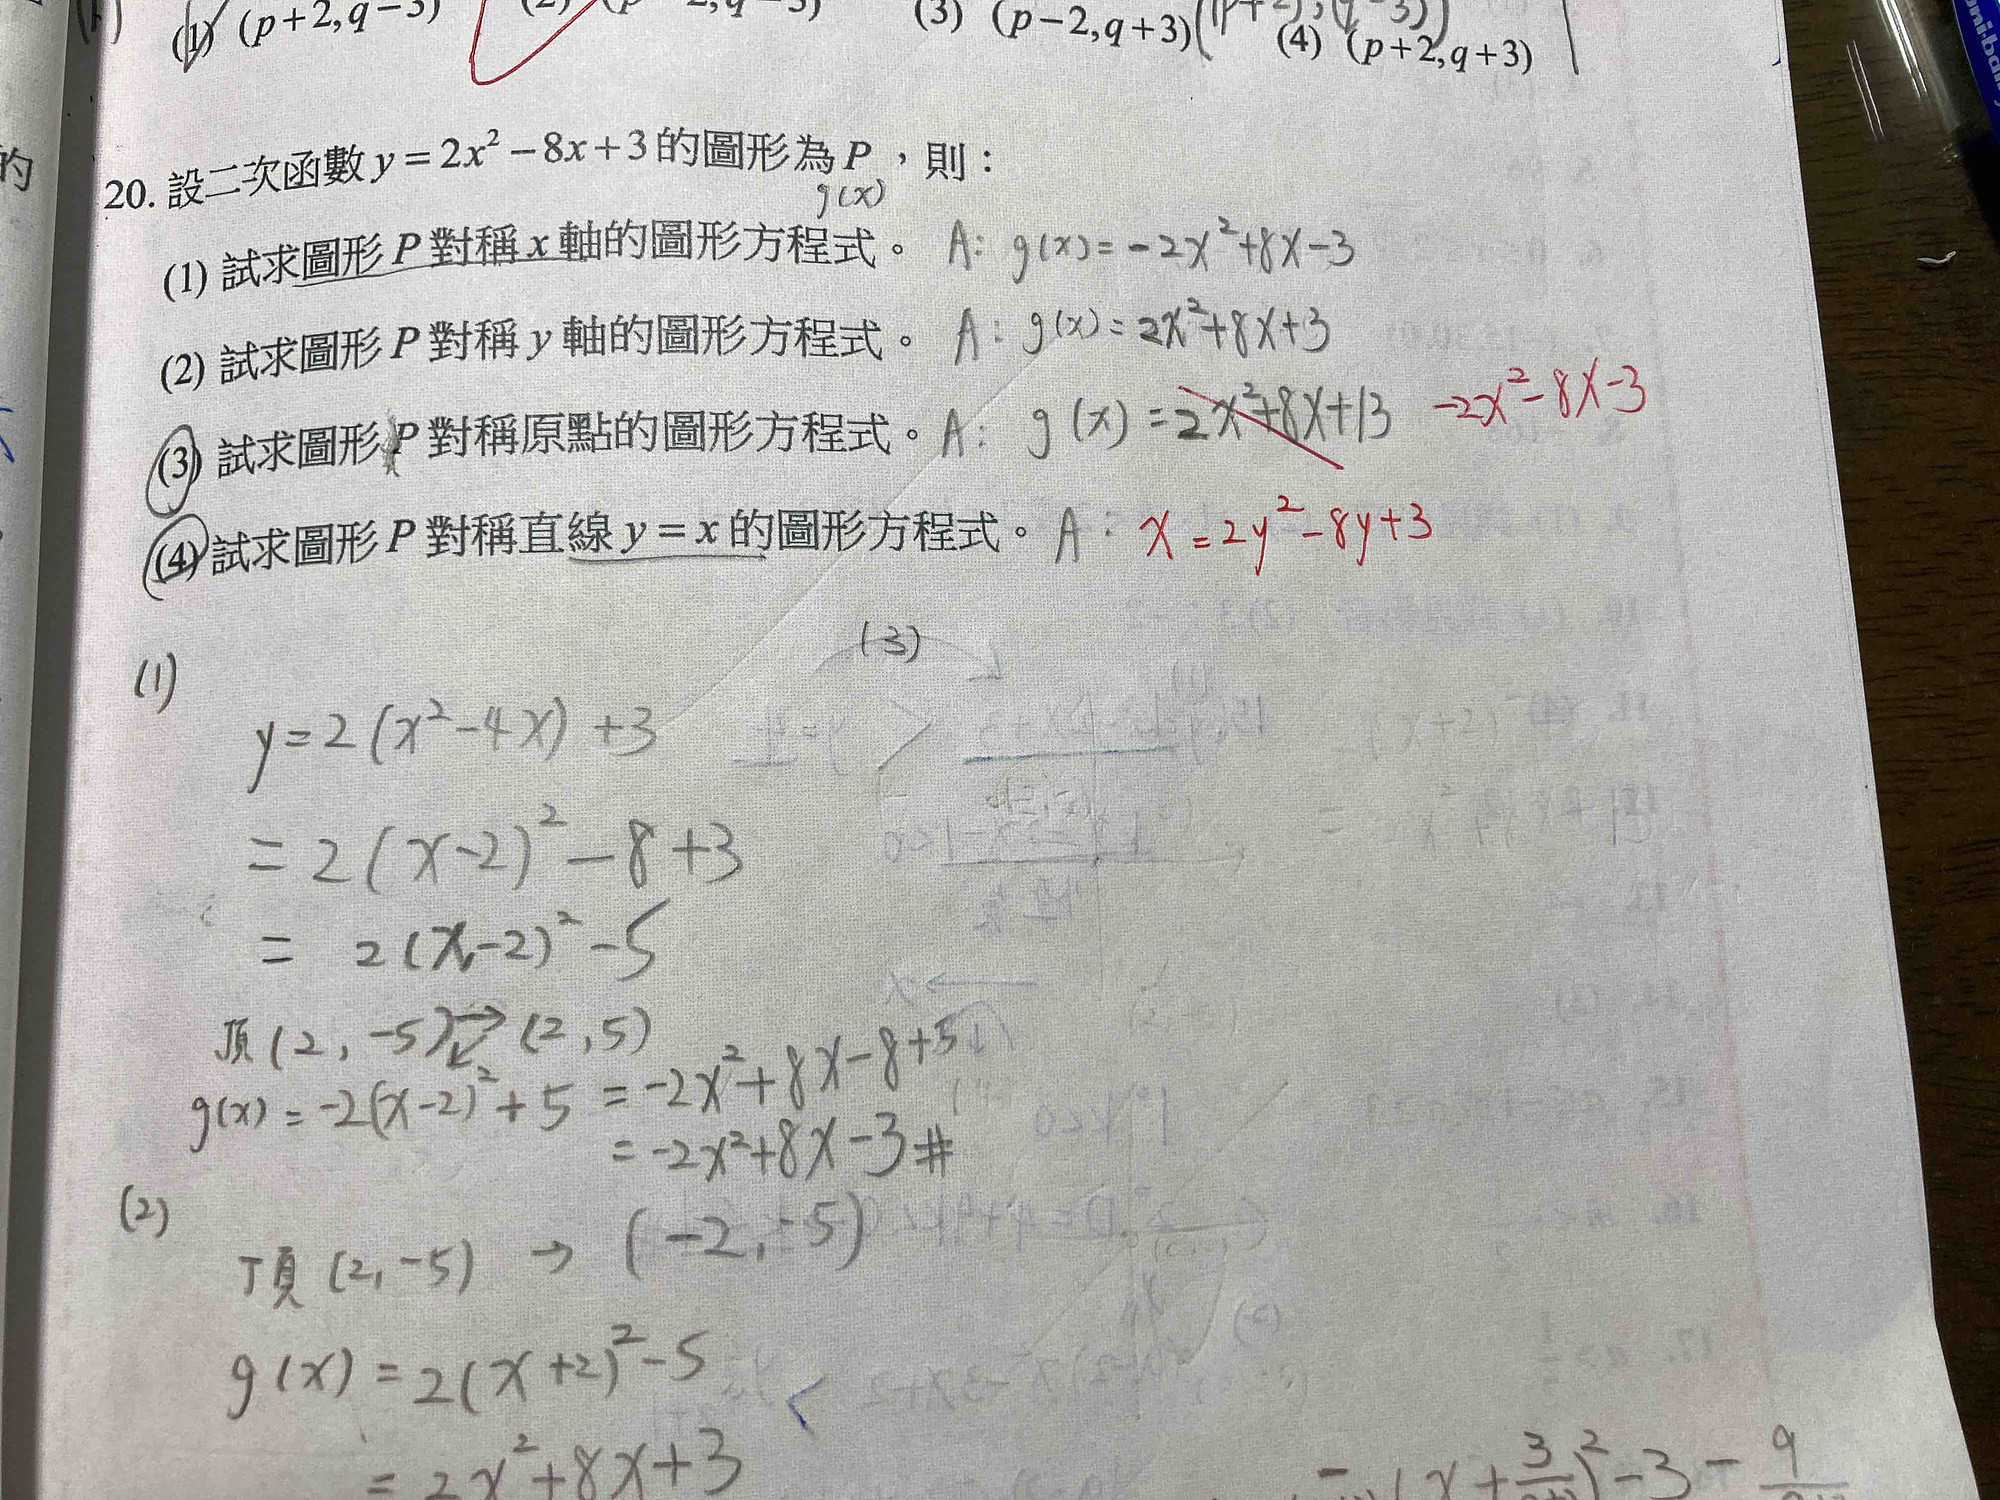 (1) (p+2,q-3)
(3) (p-2,q+3)
(4) (p+2,q+3)
的
20. 設二次函數 y=2x²-8x+3 的圖形為 P，則：
g(x)
(1) 試求圖形 P 對稱 x 軸的圖形方程式。 A: g(x)=-2x²+8x-3
(2) 試求圖形 P 對稱 y 軸的圖形方程式。 A: g(x)=2x²+8x+3
(3) 試求圖形 P 對稱原點的圖形方程式。 A: g(x)=2x²+8x+13 -2x²-8x-3
(4) 試求圖形 P 對稱直線 y=x 的圖形方程式。 A: x=2y²-8y+3
(3)
(1)
y=2(x²-4x)+3
=2(x-2)²-8+3
= 2(x-2)²-5
頂(2,-5)→(2,5)
g(x)=-2(x-2)²+5 =-2x²+8x-8+5
=-2x²+8x-3#
(2)
頂(2,-5) → (-2,-5)
g(x)=2(x+2)²-5
=2x²+8x+3